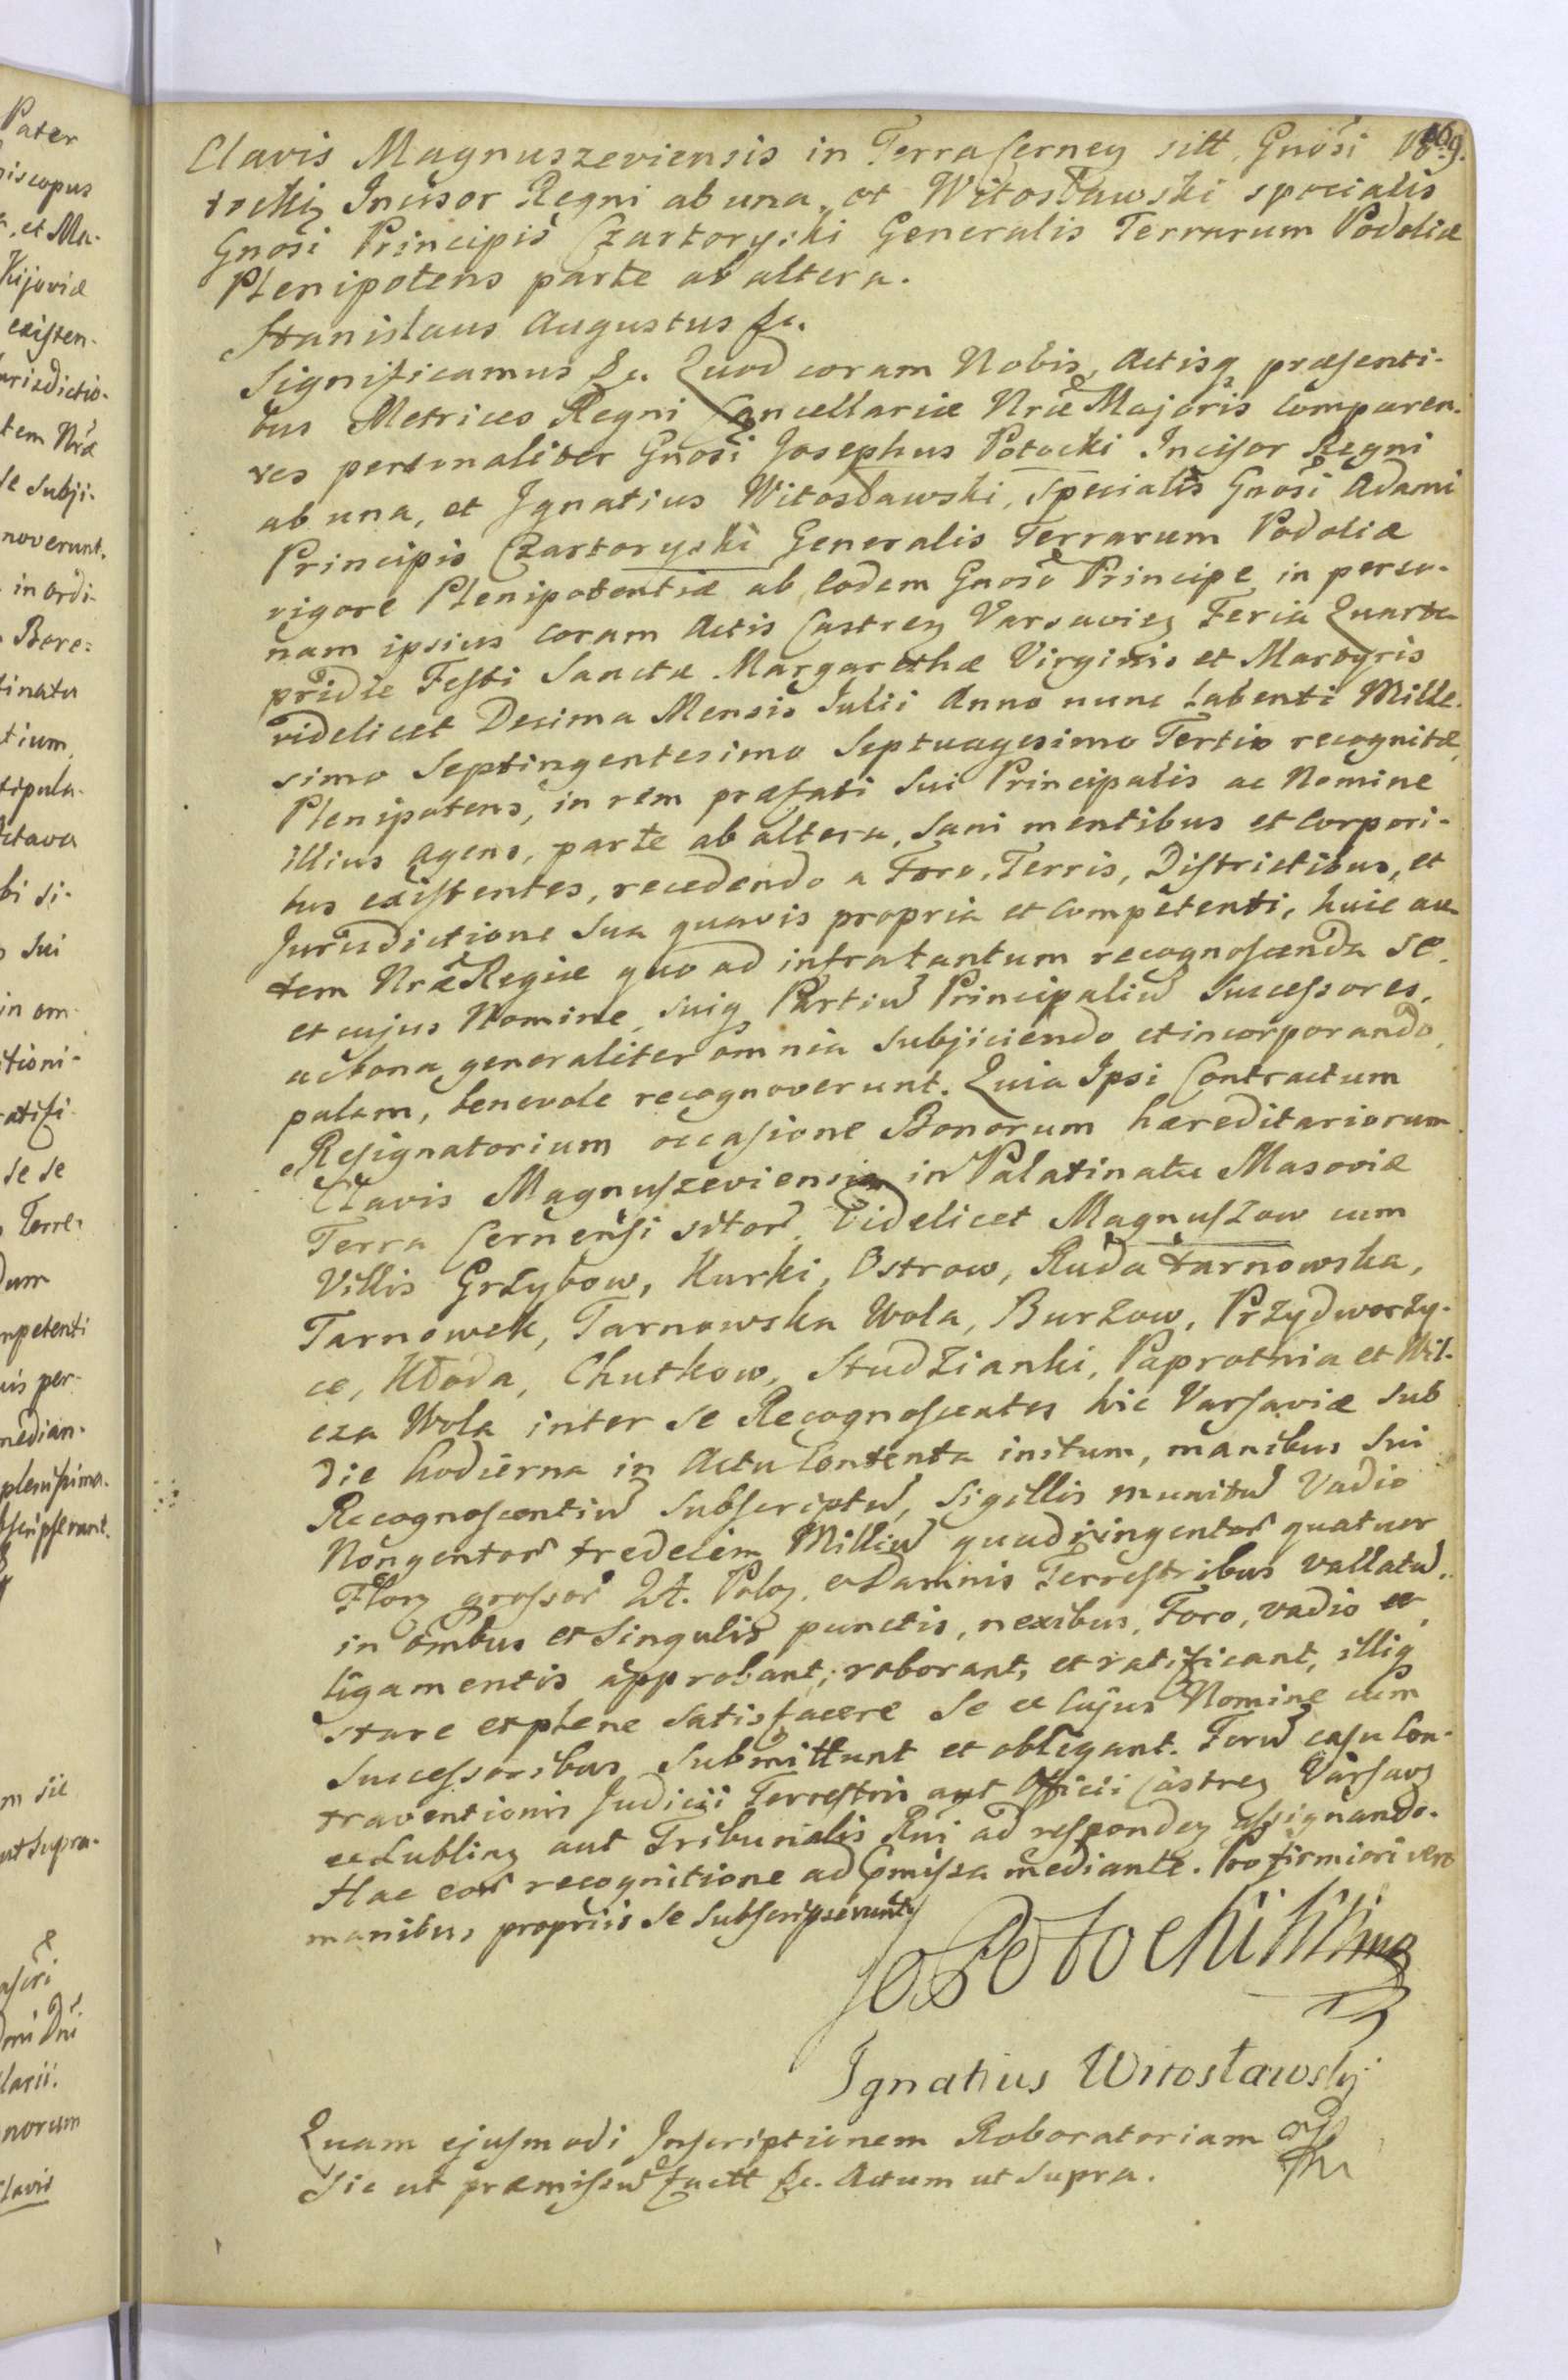 Pater
iscopus
et Ma-
Kijoviæ
existen-
urisdictio-
tem Nræ
se subji-
noverunt.
in ordi-
Bere=
tinatu
tium,
stipula-
Octava
bi si-
sui
in om
itioni-
ratifi
se se
Terre-
dum
mpetenti
nis per-
median-
plenissima.
bscripserunt.
m sic
ut supra.
larii.
norum
Clavis
69.
Clavis Magnuszeviensis in Terra Cerney sitt. Gnosi Po-
tocki Incisor Regni ab una, et Witosławski specialis
Gnosi Principis Czartoryski Generalis Terrarum Podoliæ
Plenipotens parte ab altera.
Stanislaus Augustus &c.
Significamus &c. Quod coram Nobis, Actisq præsenti-
bus Metrices Regni Cancellariæ Nræ Majoris comparen-
tes personaliter Gnosi Josephus Potocki Incisor Regni
ab una, et Ignatius Witosławski, Specialis Gnosi Adami
Principis Czartoryski Generalis Terrarum Podoliæ
vigore Plenipotentiæ ab Eodem Gnoso Principe in perso-
nam ipsius coram Actis Castren Varsavien Feria Quarta
pridie Festi Sanctæ Margarethæ Virginis et Martyris
videlicet Decima Mensis Julii Anno nunc labenti Mille-
simo Septingentesimo Septuagesimo Tertio recognitæ,
Plenipotens, in rem præfati sui Principalis ac Nomine
illius agens, parte ab altera, sani mentibus et corpori-
bus existentes, recedendo a Foro, Terris, Districtibus, et
Jurisdictione sua quavis propria et competenti, huic au-
tem Nræ Regiæ quo ad infratantum recognoscenda se,
et cujus Nomine, suiq Partiũ Principaliũ Successores,
ac bona generaliter omnia subjiciendo et incorporando,
palam, benevole recognoverunt. Quia Ipsi Contractum
Resignatorium occasione Bonorum hæreditariorum
Clavis Magnuszeviensis in Palatinatu Masoviæ
Terra Cernensi sitor. Videlicet Magnuszow cum
Villis Grzybow, Kurki, Ostrow, Ruda tarnowska,
Tarnowek, Tarnowska Wola, Burzow, Przydworzy-
ce, Kłoda, Chutkow, Studzianki, Paprotnia et Wil-
cza Wola inter se Recognoscentes hic Varsaviæ sub
die hodierna in Actu Contenta initum, manibus sui
Recognoscentiũ subscriptũ, sigillis munitũ Vadio
Nongentor tredecim Milliũ quadringentor quatuor
Flon grossor 24. Polon. et Damnis Terrestribus vallatũ.
in ombus et singulis punctis, nexibus, Foro, vadio et
ligamentis approbant, roborant, et ratificant, illiq
stare et plene satisfacere se et cujus Nomine cum
Successoribus submittunt et obligant. Forũ casu con-
traventionis Judicii Terrestris aut Officii Castren Varsavn
et Lublinen aut Tribunalis Rni ad responden assignando.
Hac eor recognitione ad præmissa mediante. Pro firmiori vero
manibus propriis se subscripserunt
Jo Potocki KKmp
Ignatius Witosławsky
Quam ejusmodi Inscriptionem Roboratoriam
sic ut præmissũ factt &c. Actum ut supra.